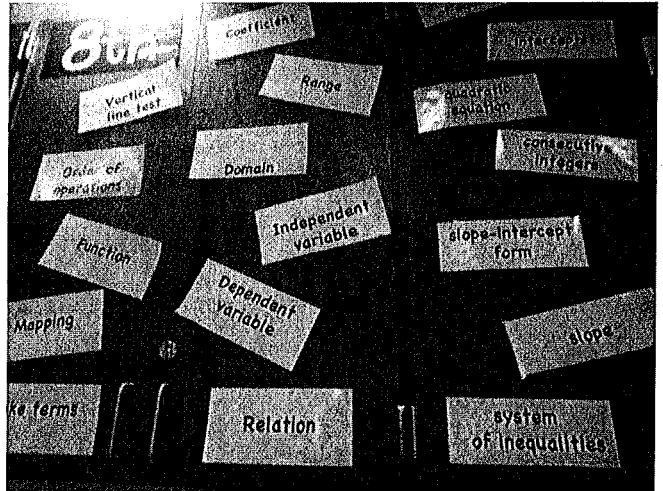 8th
Coefficient
Intercepts
Vertical
line test
Range
quadratic
equation
Order of
operations
Domain
consecutive
integers
Function
Independent
variable
slope-intercept
form
Mapping
Dependent
variable
slope
ke terms
Relation
system
of inequalities